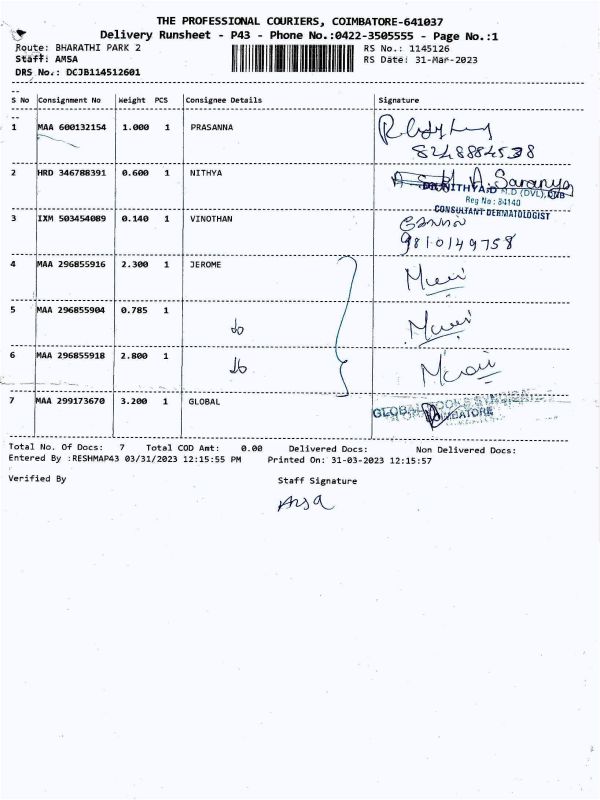 THE PROFESSIONAL COURIERS, COIMBATORE-641037
Delivery Runsheet - P43 - Phone No.:0422-3505555 - Page No.:1
Route: BHARATHI PARK 2 RS No.: 1145126
Staff: AMSA RS Date: 31-Mar-2023
DRS No.: DCJB114512601
S No Consignment No Weight PCS Consignee Details Signature
1 MAA 600132154 1.000 1 PRASANNA
8248884538
2 HRD 346788391 0.600 1 NITHYA A. Saranya
DR.NITHYA.D M.D (DVL),
Reg No : 84140
CONSULTANT DERMATOLOGIST
3 IXM 503454089 0.140 1 VINOTHAN
9810149758
4 MAA 296855916 2.300 1 JEROME
5 MAA 296855904 0.785 1 do
6 MAA 296855918 2.800 1 do
7 MAA 299173670 3.200 1 GLOBAL GLOBAL
COIMBATORE
Total No. Of Docs: 7 Total COD Amt: 0.00 Delivered Docs: Non Delivered Docs:
Entered By :RESHMAP43 03/31/2023 12:15:55 PM Printed On: 31-03-2023 12:15:57
Verified By Staff Signature